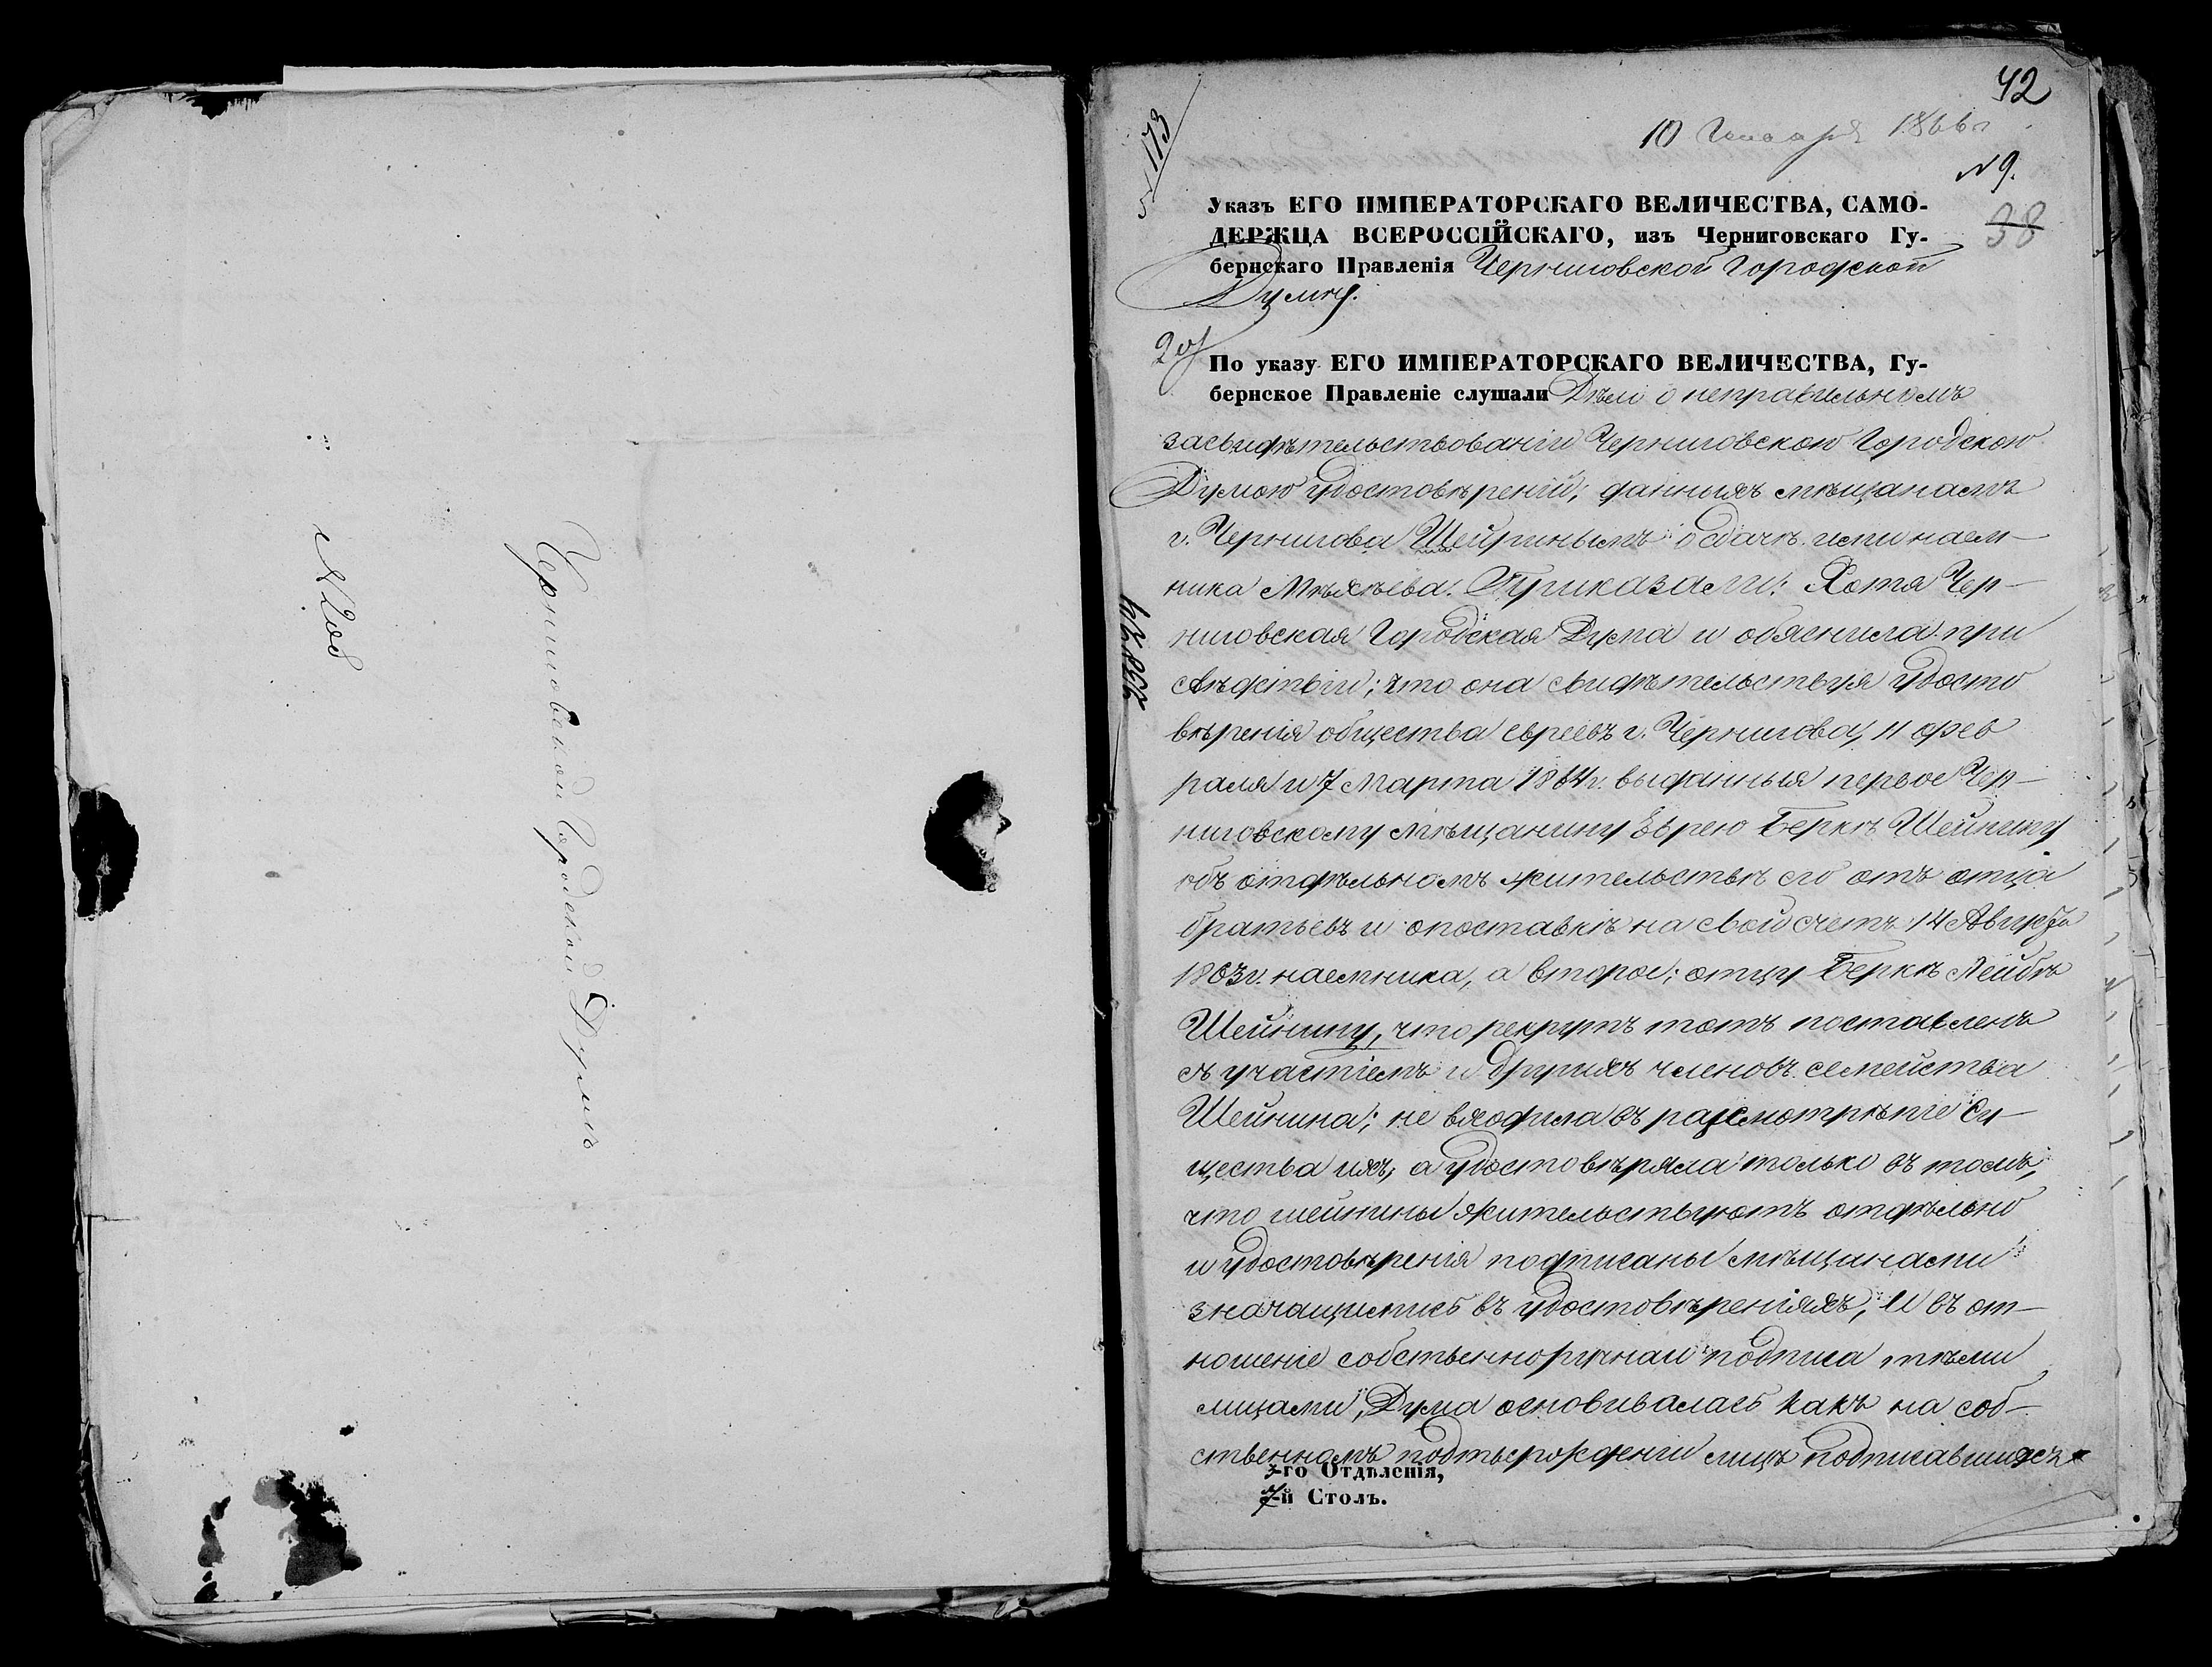 Черниговской Городской Думѣ
№ 208
42
№ 173
10 Января 1866 г.
№ 9.
38
Указъ ЕГО ИМПЕРАТОРСКАГО ВЕЛИЧЕСТВА, САМО-
ДЕРЖЦА ВСЕРОССІЙСКАГО, изъ Черниговскаго Гу-
бернскаго Правленія Черниговской Городской
Думѣ.
По указу ЕГО ИМПЕРАТОРСКАГО ВЕЛИЧЕСТВА, Гу-
бернское Правленіе слушали Дѣло о неправильномъ
засвидѣтельствованіи Черниговскою Городскою
Думою удостовѣреній, данныхъ мѣщанамъ
г. Чернигова Шейнинымъ о сдачѣ ими наем-
ника Михѣева. Приказали: Хотя Чер-
ниговская Городская Дума и обяснила при
слѣдствіи; что она свидѣтельствуя удосто
вѣренія общества евреевъ г. Чернигова, 11 фев
раля и 7 Марта 1864 г. выданныя первое Чер-
ниговскому мѣщанину Еврею Беркѣ Шейнину
объ отдѣльномъ жительствѣ его отъ отца
братьевъ и опоставкѣ на свой счетъ 14 Августа
1863 г. наемника, а второе; отцу Беркѣ Лейбѣ
Шейнину, что рекрутъ тотъ поставленъ
съ участіемъ и другихъ членовъ семейства
Шейнина; не входила въ разсмотрѣніе су-
щества ихъ, а удостовѣряла только въ томъ,
что шейнины жительствуютъ отдѣльно
и удостовѣренія подписаны мѣщанами
значащимись въ удостовѣреніяхъ, и въ от-
ношеніе собственноручнаи подписа тѣми
лицами, Дума основивалась какъ на соб-
ственномъ подтьержденіи лицъ подписавшихсъ
3-го Отдѣленія,
7-й Столъ.